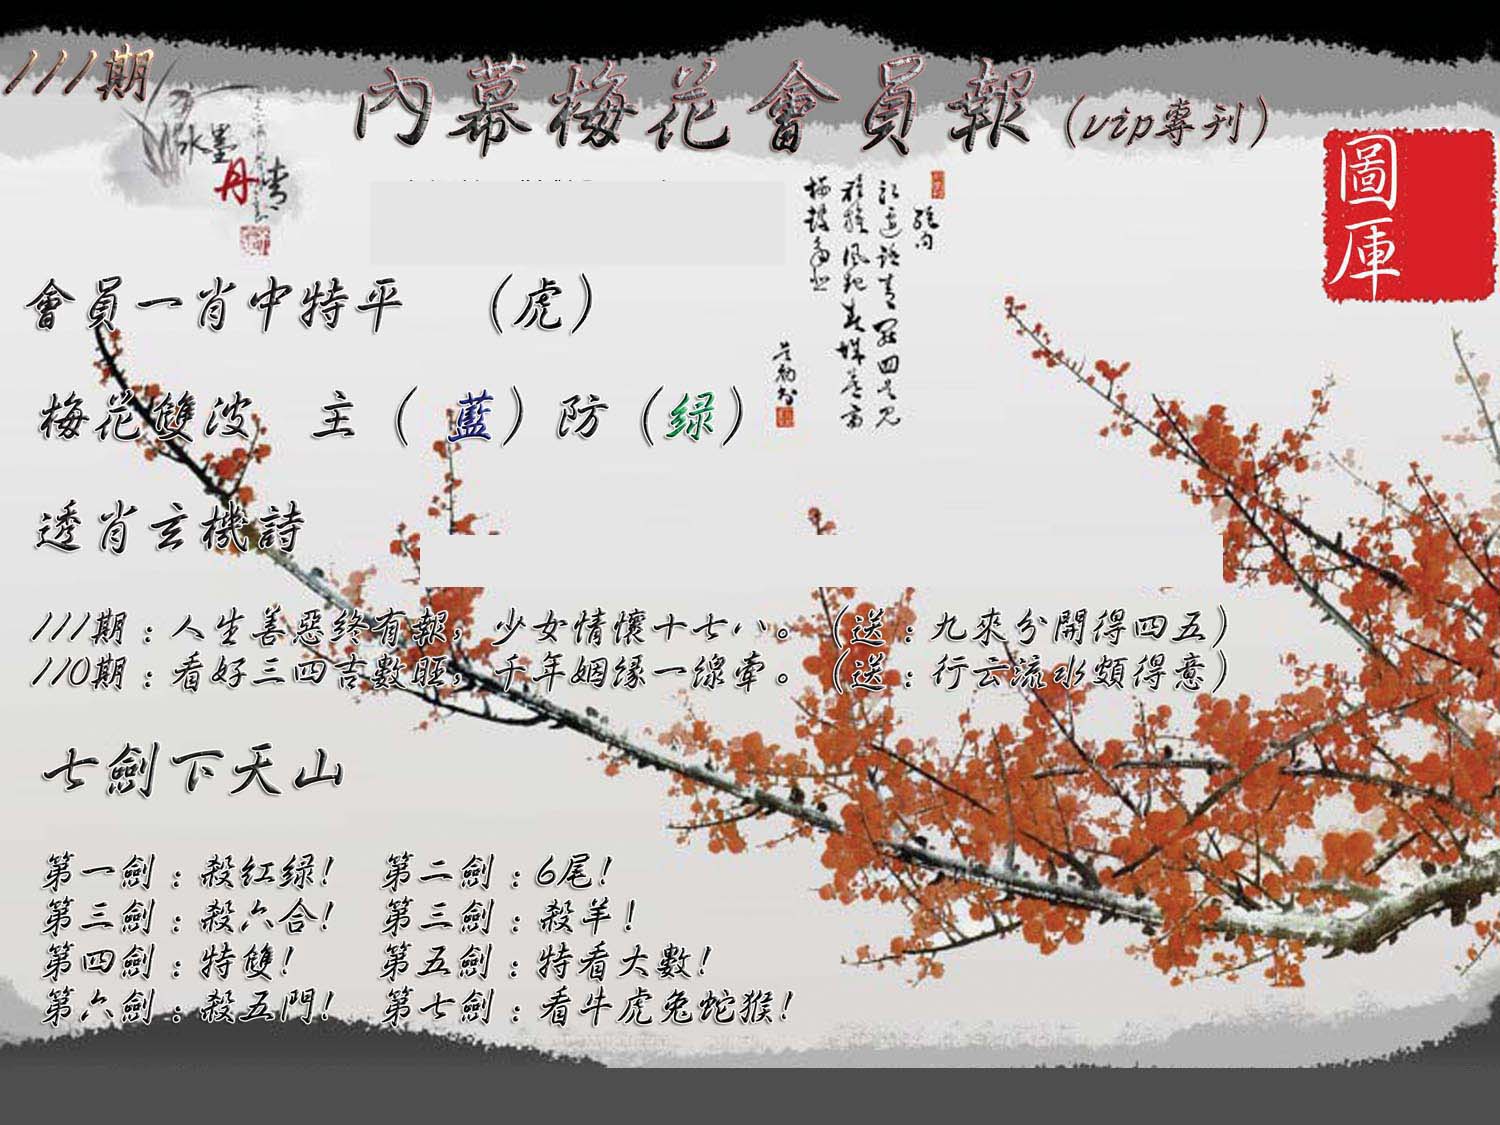 111期
內幕梅花會員報(vip專刊)
水墨
丹情
圖庫
會員一肖中特平 （虎）
梅花雙波 主（ 藍）防（绿）
透肖玄機詩
111期：人生善惡終有報，少女情懷十七八。（送：九來分開得四五）
110期：看好三四吉數旺，千年姻缘一線牽。（送：行云流水頗得意）
七劍下天山
第一劍：殺紅绿! 第二劍：6尾!
第三劍：殺六合! 第三劍：殺羊!
第四劍：特雙! 第五劍：特看大數!
第六劍：殺五門! 第七劍：看牛虎兔蛇猴!